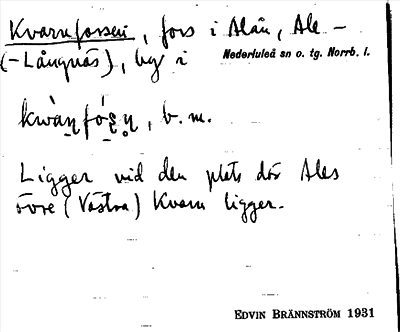 Kvarnforsen, fors i Alån, Ale -
(-Långnäs), by i Nederluleå sn o. tg. Norrb. l.
kwàn̥fó̥s̥n̥, b. m.
Ligger vid den plats där Ales
övre (Västra) Kvarn ligger.
EDVIN BRÄNNSTRÖM 1931